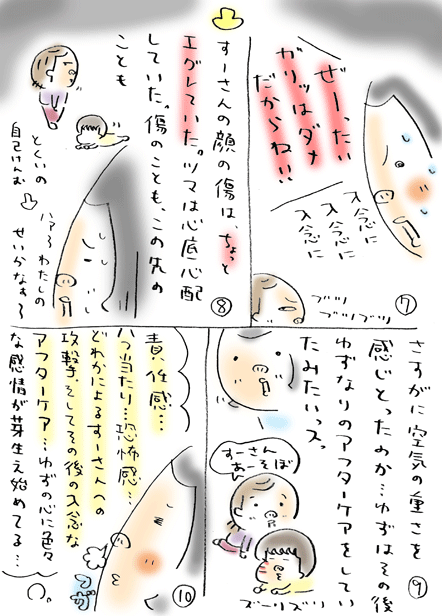 ぜーったい
ガリッはダメ
だからね!!
入念に
入念に
入念に
ブツッ
ブツブツブツ
⑦
すーさんの顔の傷は、ちょっと
エグレていた。ツマは心底心配
していた。傷のことも、この先の
ことも
とくいの
自己けんお
ハァ〜わたしの
せいかなぁ〜
⑧
さすがに空気の重さを
感じとったのか…ゆずはその後
ゆずなりのアフターケアをしてい
たみたいっス。
すーさん
あーそぼ
ズーリズリ
⑨
責任感…
八つ当たり…恐怖感…
どわかによるすーさんへの
攻撃、そしてその後の入念な
アフターケア…ゆずの心に色々
な感情が芽生え始めてる…
⑩